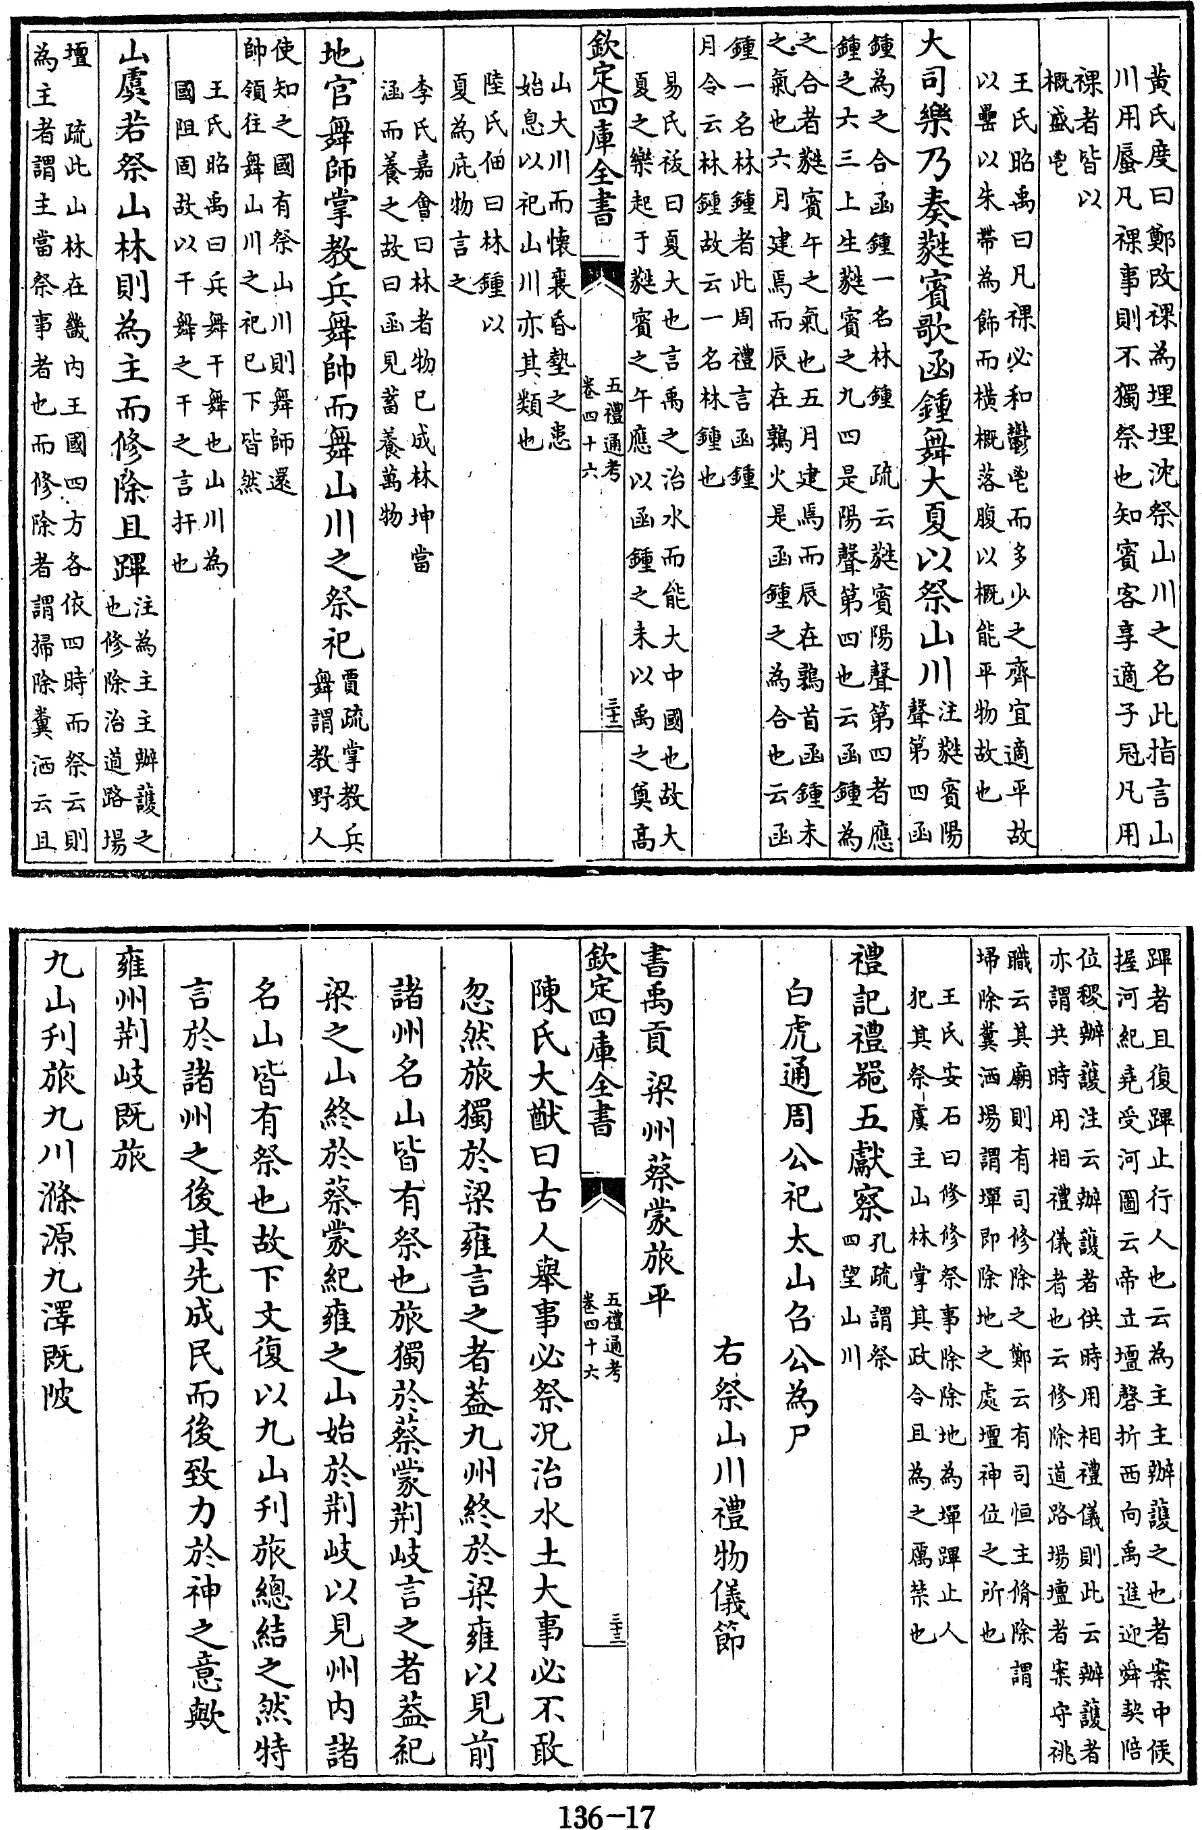 黄氏度曰鄭改祼為埋埋沈祭山川之名此指言山
川用蜃凡祼事則不獨祭也知賓客享適子冠凡用
祼者皆以
概盛鬯
王氏昭禹曰凡祼必和鬱鬯而多少之齊宜適平故
以罍以朱帶為飾而横概落腹以概能平物故也
大司樂乃奏蕤賓歌函鍾舞大夏以祭山川
注蕤賓陽
聲第四函
鍾為之合函鍾一名林鍾 疏云蕤賓陽聲第四者應
鍾之六三上生蕤賓之九四是陽聲第四也云函鍾為
之合者蕤賓午之氣也五月建焉而辰在鶉首函鍾未
之氣也六月建焉而辰在鶉火是函鍾之為合也云函
鍾一名林鍾者此周禮言函鍾
月令云林鍾故云一名林鍾也
易氏祓曰夏大也言禹之治水而能大中國也故大
夏之樂起于蕤賓之午應以函鍾之未以禹之奠高
欽定四庫全書
五禮通考
卷四十六
三十二
山大川而懷襄昏墊之患
始息以祀山川亦其類也
陸氏佃曰林鍾以
夏為庇物言之
李氏嘉會曰林者物已成林坤當
涵而養之故曰函見蓄養萬物
地官舞師掌教兵舞帥而舞山川之祭祀
賈疏掌教兵
舞謂教野人
使知之國有祭山川則舞師還
帥領往舞山川之祀已下皆然
王氏昭禹曰兵舞干舞也山川為
國阻固故以干舞之干之言扞也
山虞若祭山林則為主而修除且蹕
注為主主辦護之
也修除治道路場
壇 疏此山林在畿内王國四方各依四時而祭云則
為主者謂主當祭事者也而修除者謂掃除糞洒云且
蹕者且復蹕止行人也云為主主辦護之也者案中候
握河紀堯受河圖云帝立壇磬折西向禹進迎舜契陪
位稷辦護注云辦護者供時用相禮儀則此云辦護者
亦謂共時用相禮儀者也云修除道路場壇者案守祧
職云其廟則有司修除之鄭云有司恒主脩除謂
埽除糞洒場謂墠即除地之處壇神位之所也
王氏安石曰修修祭事除除地為墠蹕止人
犯其祭虞主山林掌其政令且為之厲禁也
禮記禮器五獻察
孔疏謂祭
四望山川
白虎通周公祀太山召公為尸
右祭山川禮物儀節
書禹貢 梁州蔡蒙旅平
欽定四庫全書
五禮通考
卷四十六
三十三
陳氏大猷曰古人舉事必祭况治水土大事必不敢
忽然旅獨於梁雍言之者蓋九州終於梁雍以見前
諸州名山皆有祭也旅獨於蔡蒙荆岐言之者蓋紀
梁之山終於蔡蒙紀雍之山始於荆岐以見州内諸
名山皆有祭也故下文復以九山刋旅總結之然特
言於諸州之後其先成民而後致力於神之意歟
雍州荆岐既旅
九山刋旅九川滌源九澤既陂
136-17